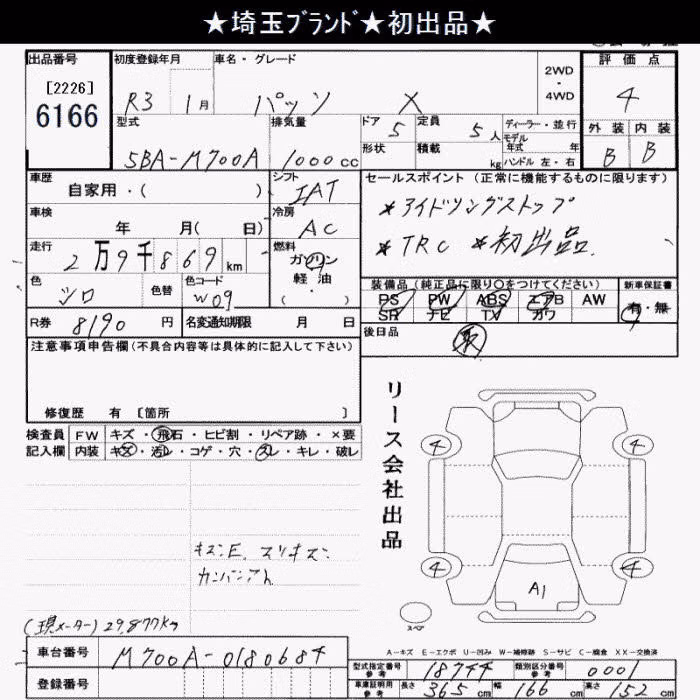 ★埼玉ﾌﾞﾗﾝﾄﾞ★初出品★
出品番号
[2226]
6166
初度登録年月
R3 1月
車名・グレード
パッソ X
2WD
・
4WD
評価点
4
外装 内装
B B
型式
5BA-M700A
排気量
1000cc
ドア 5
定員 5人
形状
積載 kg
ディーラー・並行
モデル
年式 年
ハンドル 左・右
車歴
自家用・( )
シフト
IAT
セールスポイント(正常に機能するものに限ります)
*アイドリングストップ
*TRC *初出品.
車検
年 月( 日)
冷房
AC
走行
2万9千869km
燃料
ガソリン
・
軽油
( ・ )
色
シロ
色替
色コード
W09
装備品(純正品に限り○をつけてください)
PS PW ABS エアB AW
SR ナビ TV カワ
新車保証書
有・無
R券 8190円
名変通知期限 月 日
後日品
取
注意事項申告欄(不具合内容等は具体的に記入して下さい)
修復歴 有 [箇所 ]
検査員
記入欄
FW キズ・飛石・ヒビ割・リペア跡・×要
内装 キズ・汚レ・コゲ・穴・スレ・キレ・破レ
リース会社出品
4 4
4 4
A1
スペア
キズ.E. スリキズ.
(現メーター) 29,877km
A-キズ E-エクボ U-凹み W-補修跡 S-サビ C-腐食 XX-交換済
車台番号 M700A-0180684
登録番号
型式指定番号
参考
18744
類別区分番号
参考
0001
車庫証明用
参考
長さ 365cm 幅 166cm 高さ 152cm